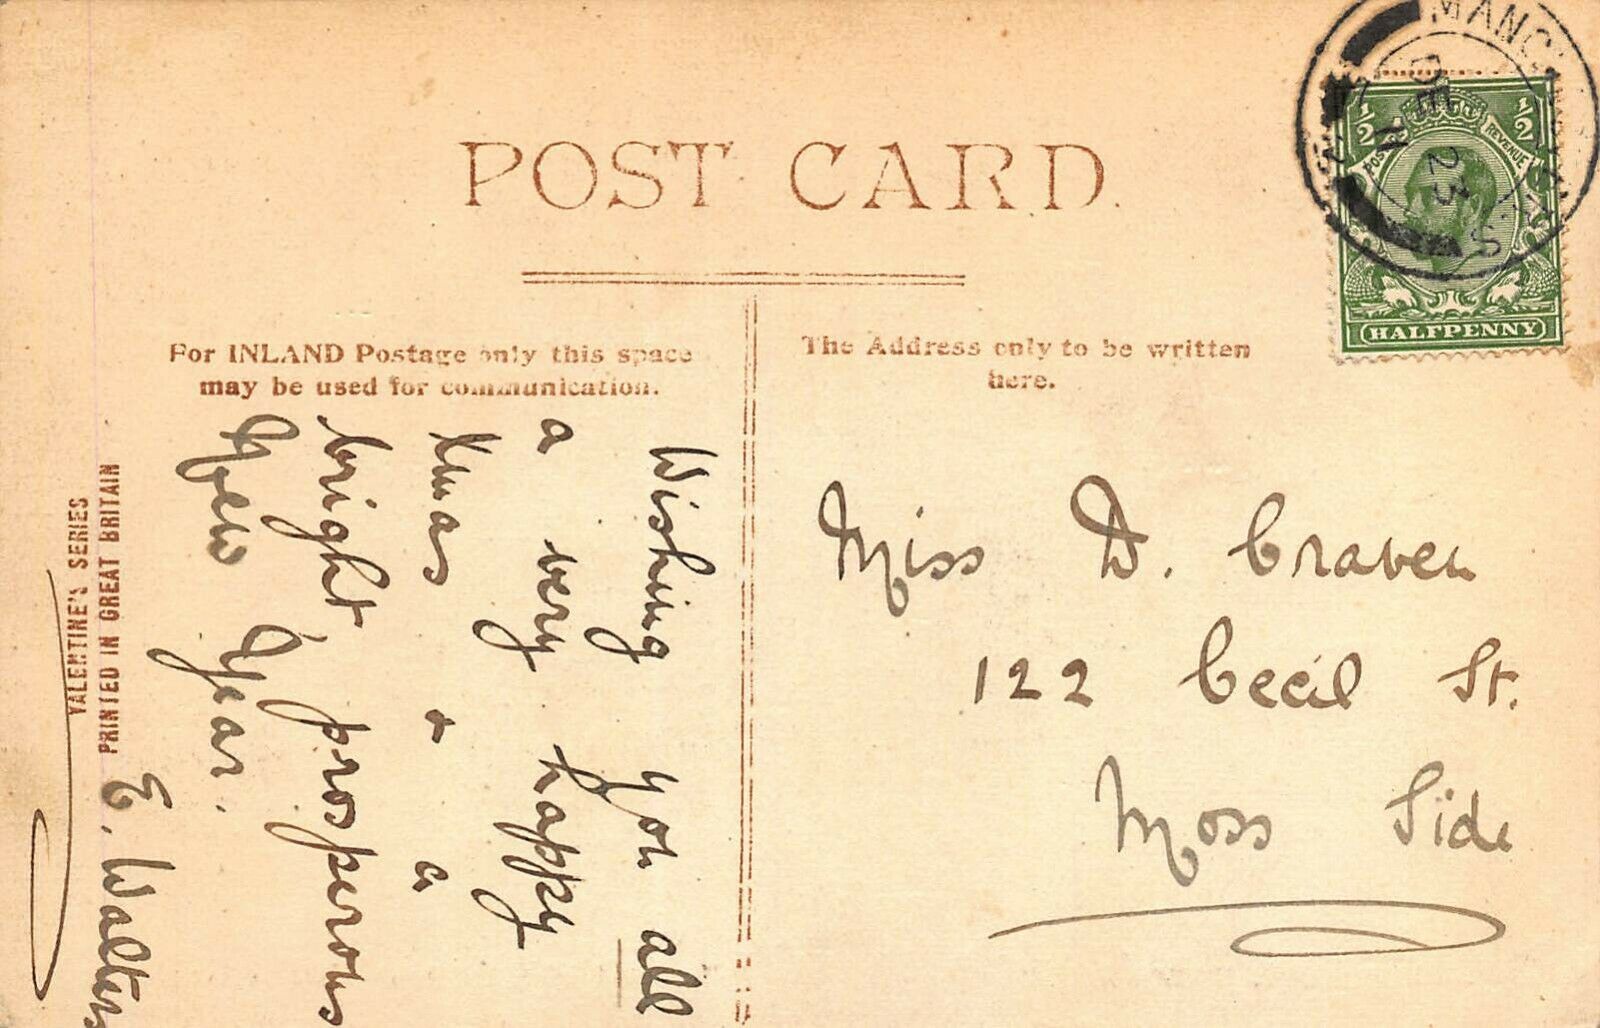 POST CARD
For INLAND Postage only this space
may be used for communication.
The Address only to be written
here.
MANCH
DE 23
½ ½
POSTAGE REVENUE
HALFPENNY
Wishing you all
a very happy
Xmas & a
bright, prosperous
New Year.
E. Walters
Miss D. Craven
122 Cecil St.
Moss Side
VALENTINE'S SERIES
PRINTED IN GREAT BRITAIN